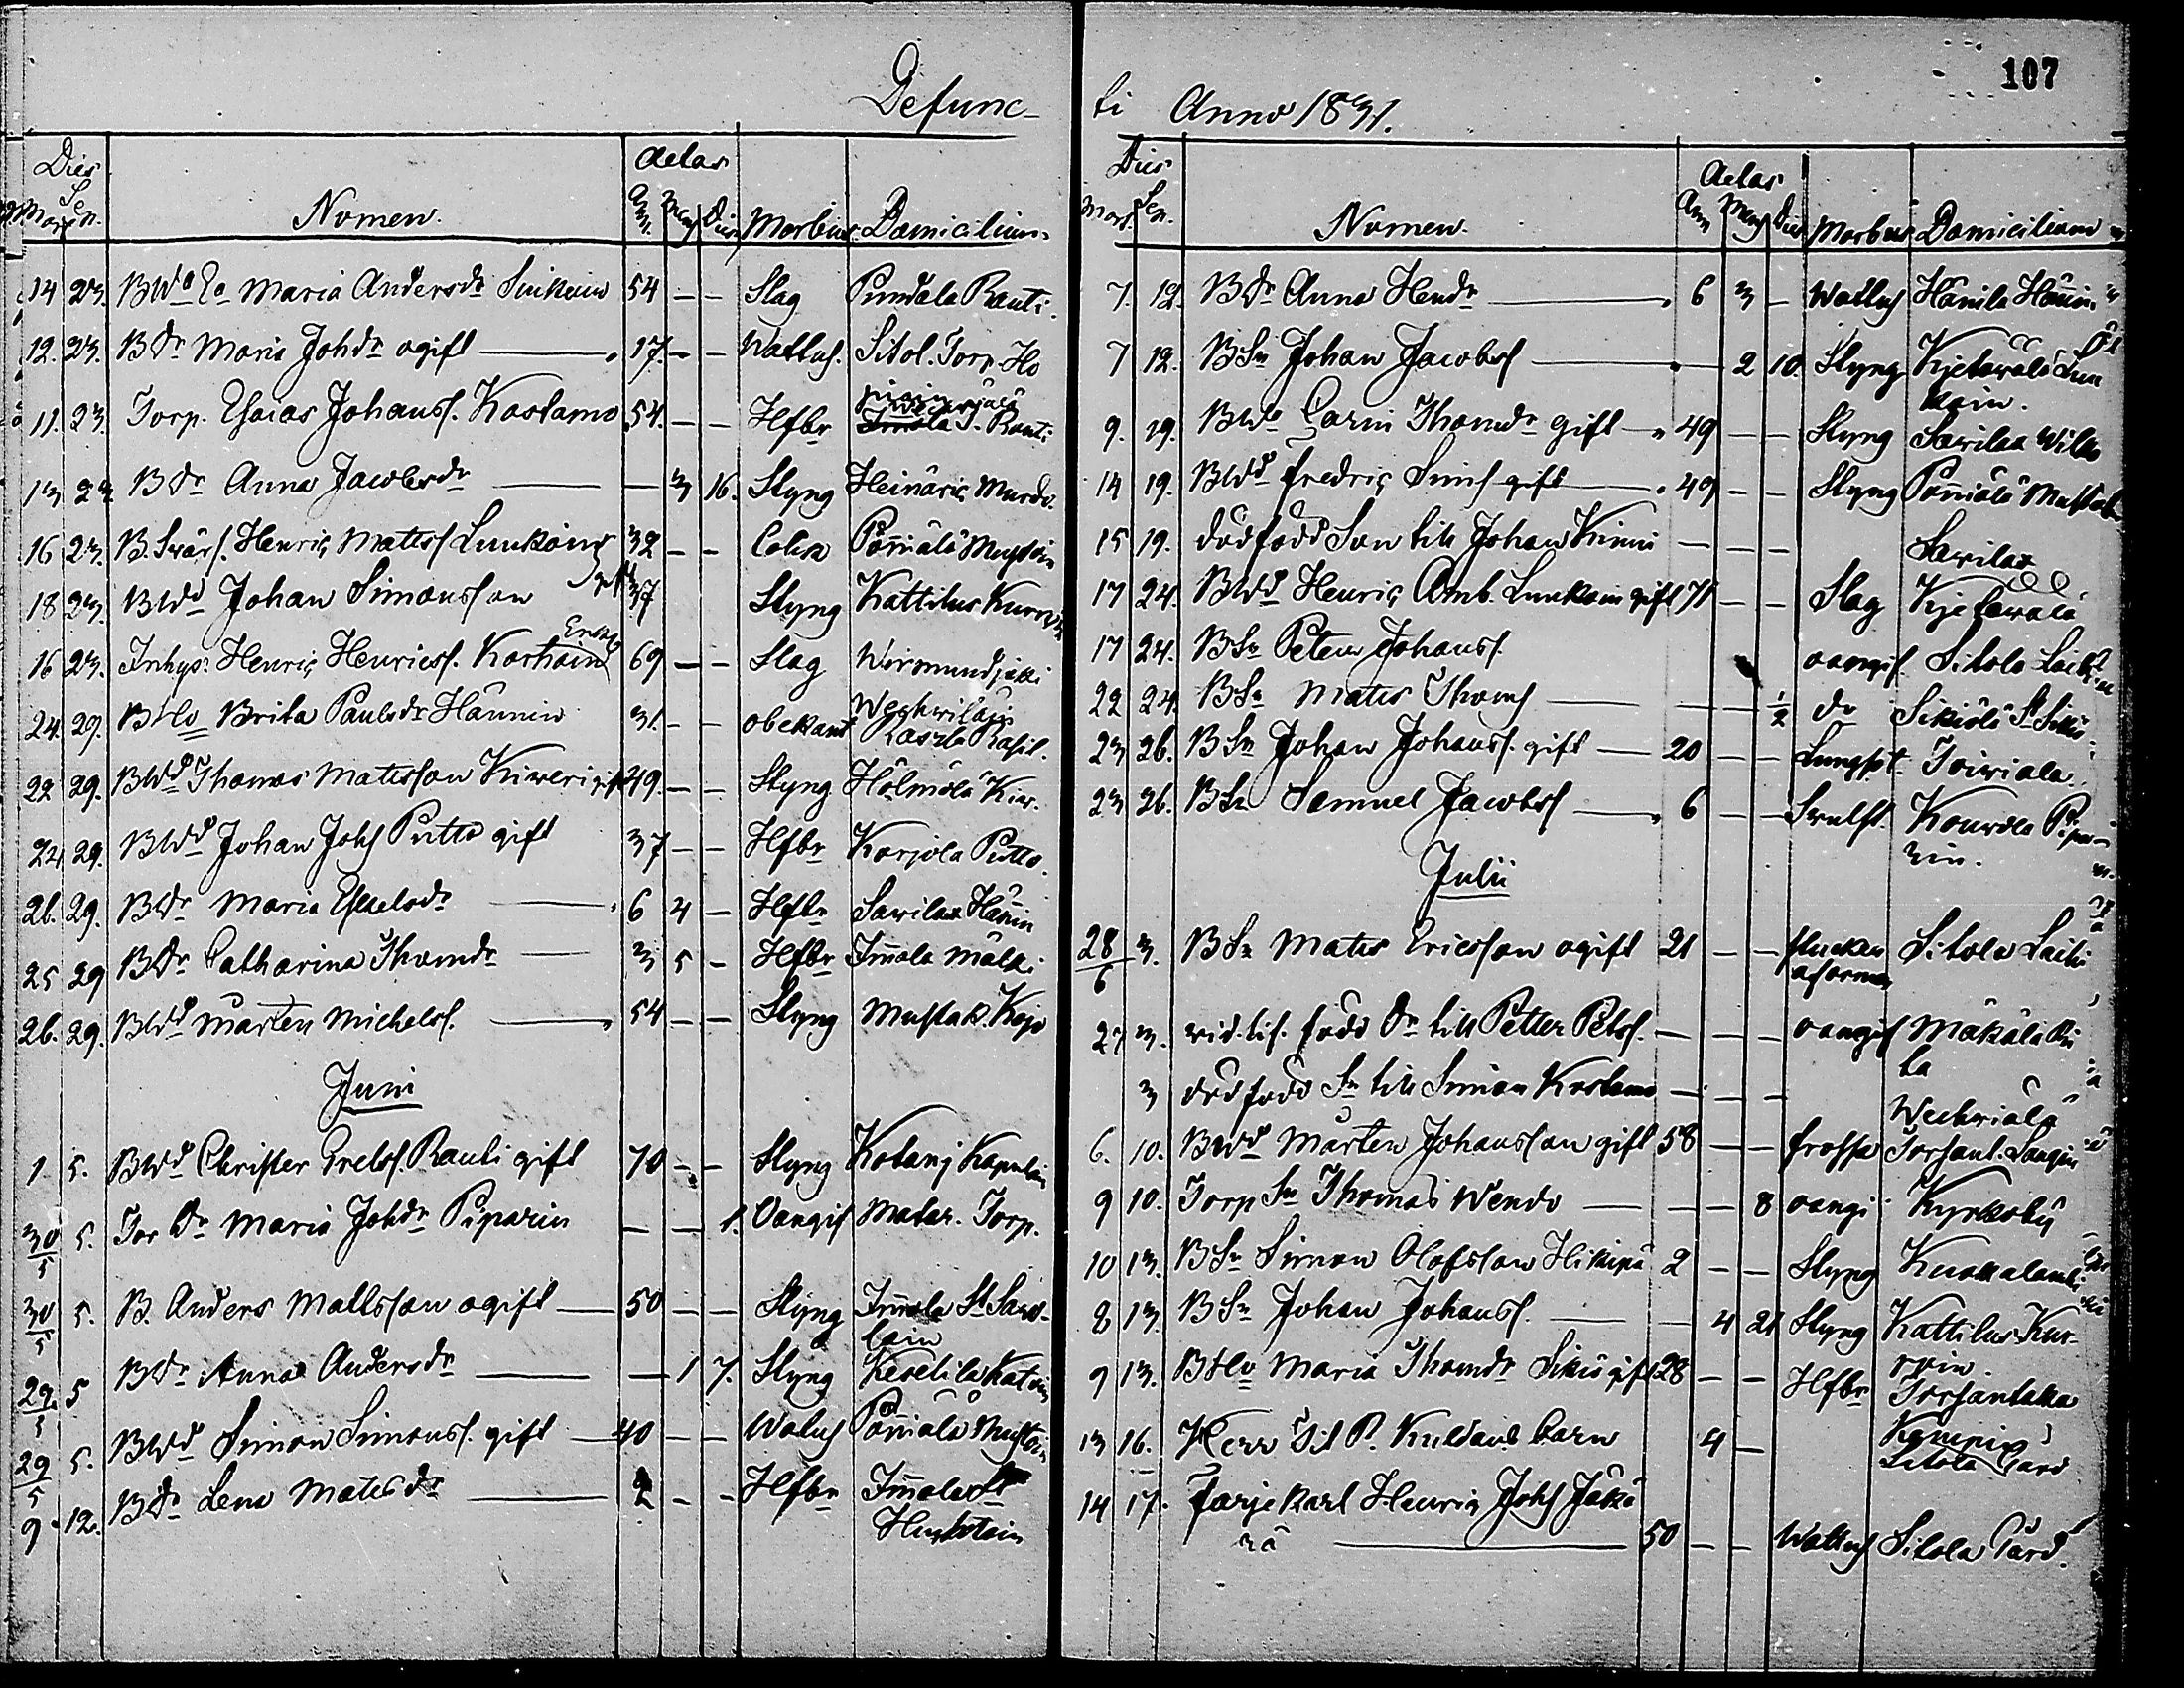 107
Defunc-
ti Anno 1831.
Dies
Mort. Sep. Nomen. Aetas Ann. Mens. Dies Morbus. Domicilium.
14 23. BWa Ea Maria Andersdr Sinkoin 54 — — Slag Pundala Rauti.
12. 23. BDr Maria Johdr ogift — 17. — — Wattus. Sitol. Torp. Ho
11. 23. Torp. Esaias Johanss. Kostamo 54. — — Hfbr Immola S. Rauti
13 23 BDr Anna Jacobsdr — — 3 16. Styng Heinäric Murdo.
16 23. B. Swärs. Henric Mattss Lunkoin 32 — — Colik Poñiälä Mustoin
18 23. BWd Johan Simonsson gift 37 Styng Kattilus Kurr
16 23. Inhys. Henric Henricss. Korhoin Enkl. 69 — — Slag Wirmundjoki
24. 29. BHo Brita Paulsdr Hännin 31. — — obekant
22 29. BWd Thomas Matisson Kiweri gift 49. — — Styng Hölmölä Kiw.
24 29. BWd Johan Johs Putto gift 37 — — Hfbr Korjola Putto.
26. 29. BDr Maria Eskelsdr — 6 4 — Hfbr Sawilax Hänin
25 29 BDr Catharina Thomdr — 3 5 — Hfbr Imola Mälki
26. 29. BWd Mårten Michelss. — 54 — — Styng Mustak. Kojo
Juni
1. 5. BWd Christer Grelss. Rauti gift 70 — — Styng Kotanj Kapulain
30/5 5. Tor Dr Maria Johdr Piparin — — 1. Oangif Matar. Torp.
30/5 5. B. Anders Mattsson ogift — 50 — — Styng Imola St Sawo-
lain
29/5 5 BDr Anna Andersdr — — 1 7. Styng Kesetilä Katoin
29/5 5. BWd Simon Simonss. gift — 40 — — Watus Poñiälä Mustoin
9 12. BDr Lena Matisdr — 2 — — Hfbr Imola St
Dies
Mort. Sep. Nomen. Aetas Ann Mens Dies Morbus Domicilium
7. 12. BDr Anna Hendr — 6 3 — Wattus Hänilä Hännin
7 12. BSn Johan Jacobss — 2 10 Styng Kjetäwälä Lun
koin.
9. 19. BWa Carin Thomdr gift — 49 — — Styng Sawilax Wilko
14 19. BWd Fredric Sims gift — 49 — — Styng Poñiälä
15 19. dödfödd Son till Johan Kinni — — — Sawilax
17 24. BWd Henric Amb. Lunkoin gift 71 — — Slag Kjetäwälä
17 24. BSn Peter Johanss. oangif. Sitola Laiti
22 24. BSn Matis Thoms — — — 1/2 do Sikiölä St Sikiö
23 26. BSn Johan Johanss. gift — 20 — — Lungsot. Toiwiala.
23 26. BSn Samuel Jacobss — 6 — — Swulst. Kouwola Pipa-
rin.
Julii
28/6 3. BSn Matis Ericsson ogift 21 — — Sitola Laiti
27 3. till Petter Petss. — — — oangif Mäkälä Ri
ta
3 dödfödd Sn till Simon Kostamo — — — Weckriälä
6. 10. BWd Mårten Johansson gift 58 — — frossa Torsant. Sangin
9 10. Torp Sn Thomas Wendo — — — 8 oangi Kyrkoby
10 13. BSn Simon Olofsson Hikipä 2 — — Styng Kuokalamb.
8 13. BSn Johan Johanss. — — 4 21 Styng Kattilus Kur-
roin
9 13. BHo Maria Thomdr Sikiö gift 28 — — Hfbr Torsantaka
13 16. Herr Tit P. Kuldains barn 4 — Sitola Gård
14 17. Färjekarl Henric Johs Jäkä
rä — 50 — — Wattus Sitola Gård.